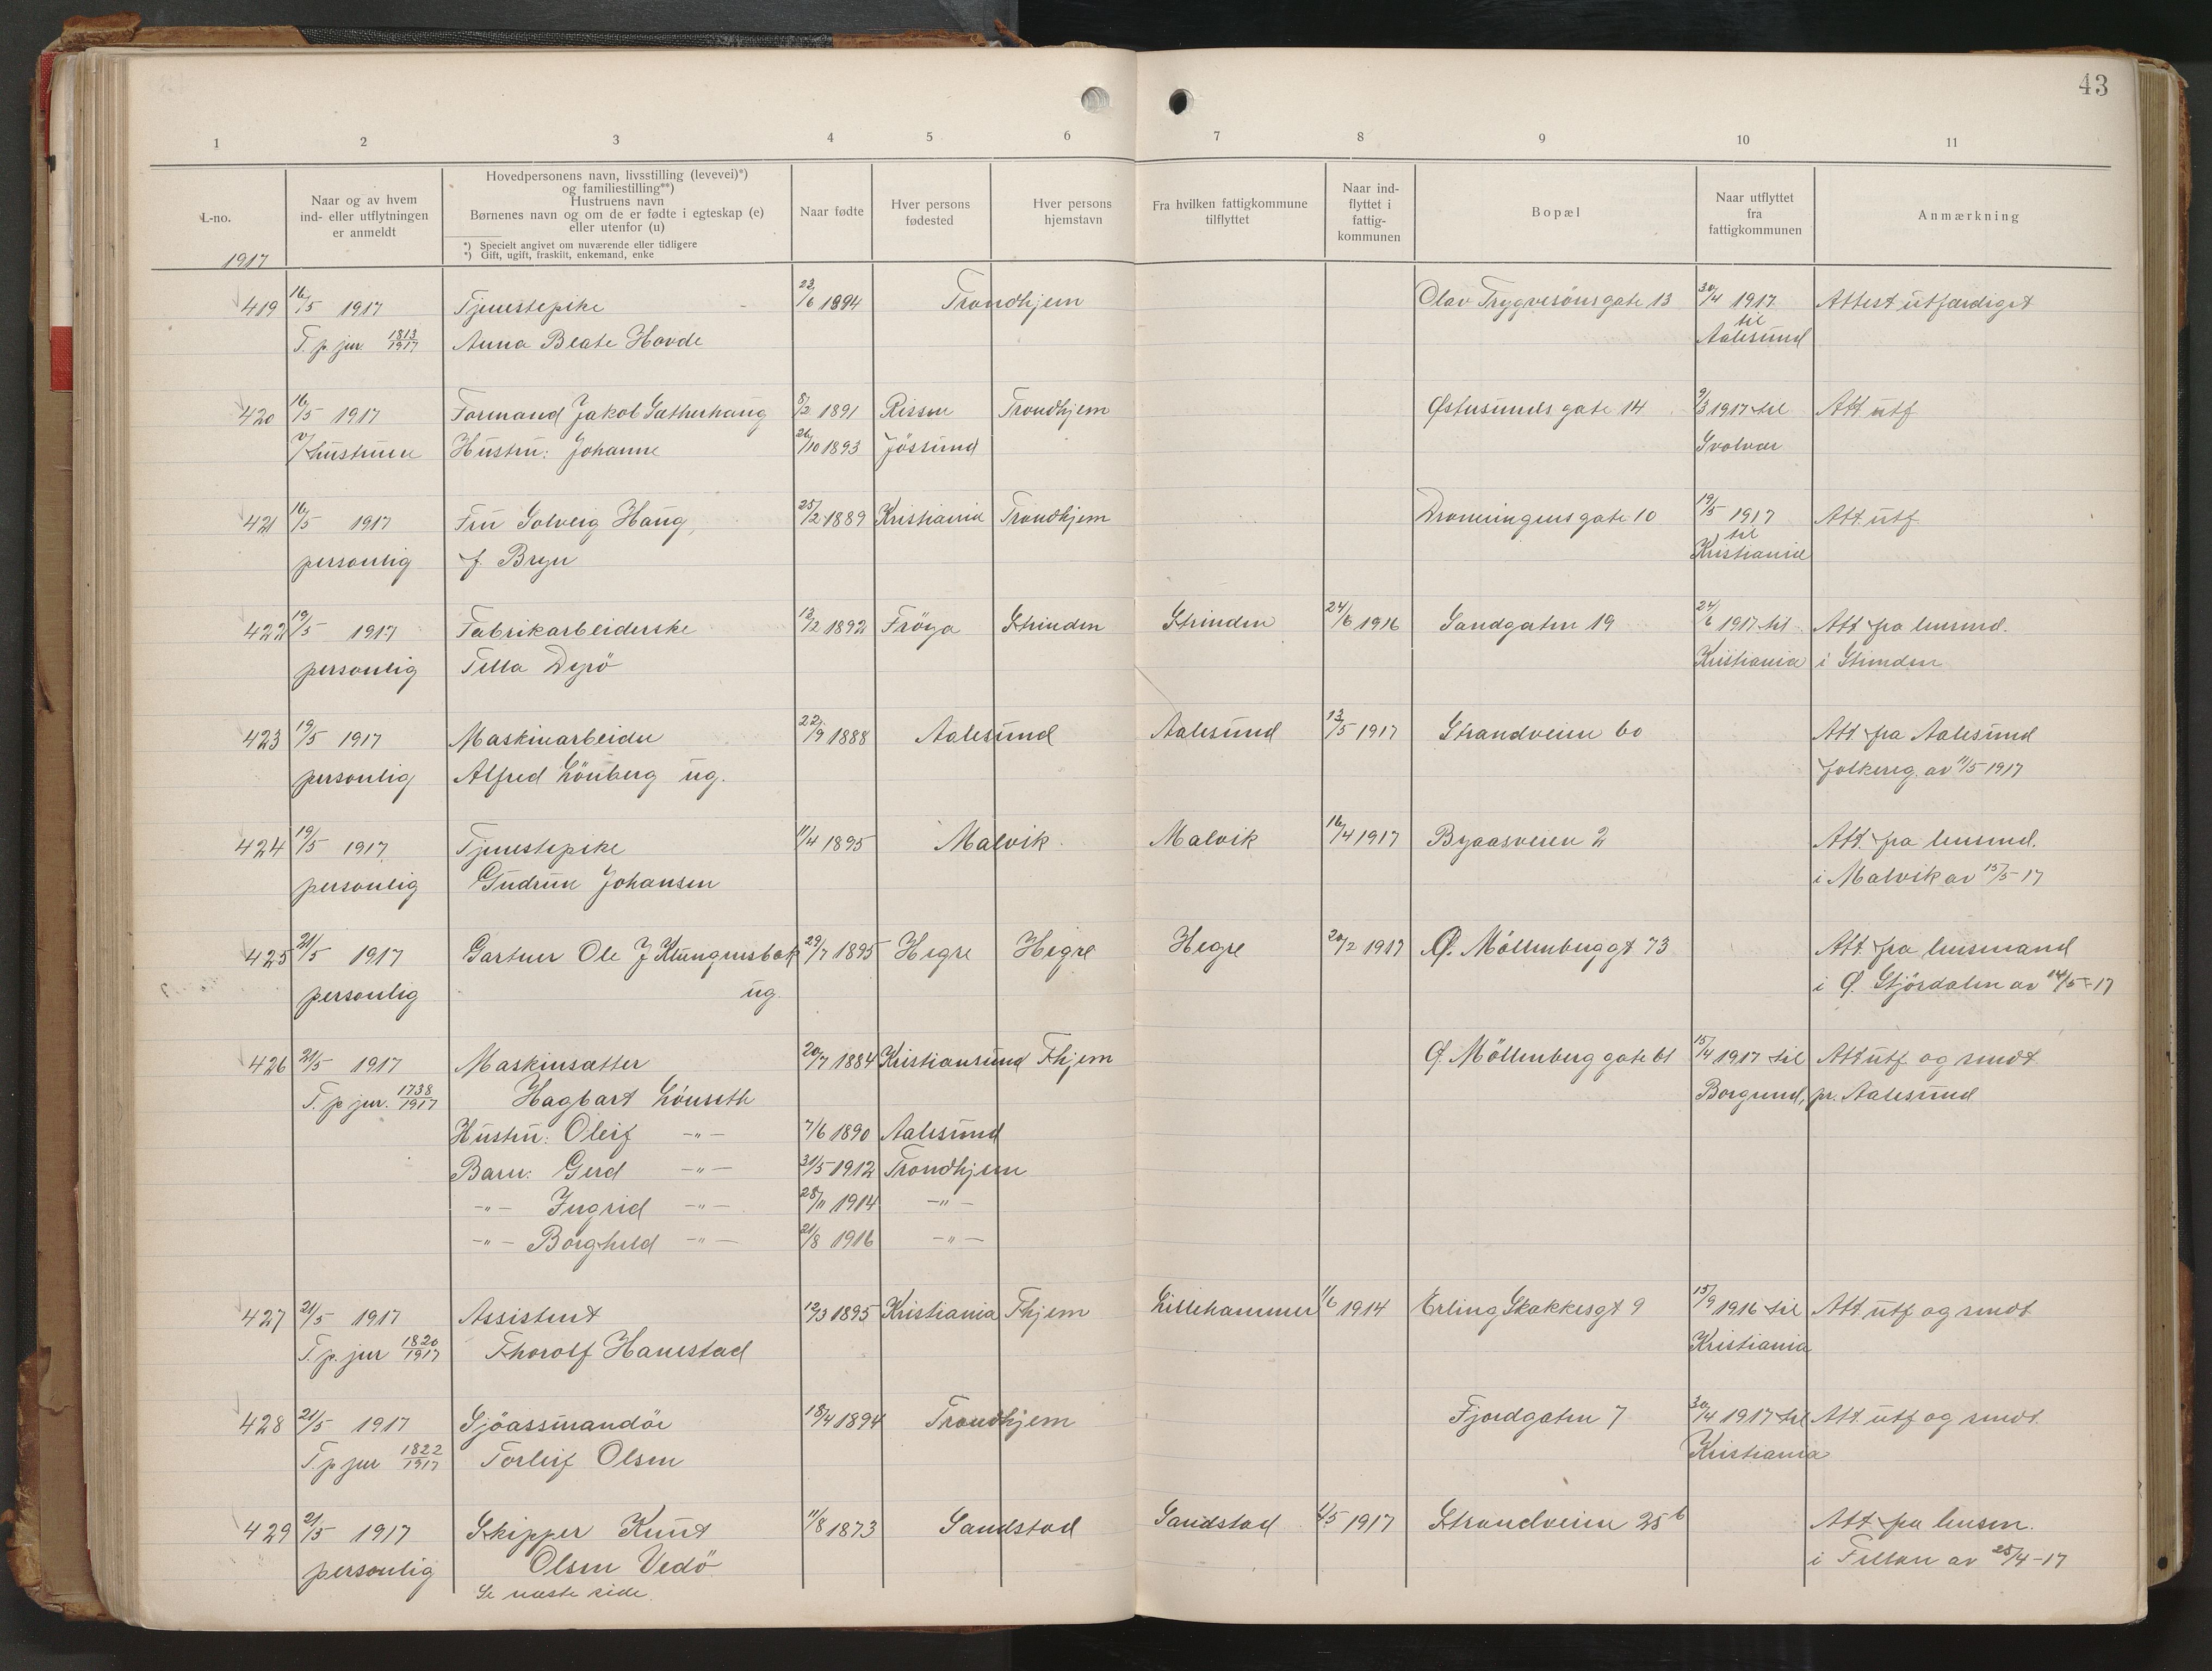 43
1 2 3 4 5 6 7 8 9 10 11
L-no.
1917
Naar og av hvem
ind- eller utflytningen
er anmeldt
Hovedpersonens navn, livsstilling (levevei)*)
og familiestilling**)
Hustruens navn
Børnenes navn og om de er fødte i egteskap (e)
eller utenfor (u)
*) Specielt angivet om nuværende eller tidligere
*) Gift, ugift, fraskilt, enkemand, enke
Naar fødte
Hver persons
fødested
Hver persons
hjemstavn
Fra hvilken fattigkommune
tilflyttet
Naar ind-
flyttet i
fattig-
kommunen
Bopæl
Naar utflyttet
fra
fattigkommunen
Anmærkning
419 16/5 1917 Tjenestepike 23/6 1894 Trondhjem Olav Trygvesöns gate 13 30/4 1917 Attest utfærdiget
til
T. p. jur. 1813/1917 Anna Beate Hovde Aalesund
420 16/5 1917 Formand Jakob Sætherhaug 8/2 1891 Rissen Trondhjem Østersunds gate 14 9/3 1917 til Att utf
v/hustruen Hustru: Johanne 26/10 1893 Jössund Svolvær
421 16/5 1917 Fru Solveig Haug, 25/2 1889 Kristiania Trondhjem Dronningens gate 10 19/5 1917 Att. utf
til
personlig f. Bryn Kristiania
422 19/5 1917 Fabrikarbeiderske 12/2 1892 Fröya Strinden Strinden 24/6 1916 Sandgaten 19 24/6 1917 til Att. fra lensmd.
personlig Tella Dyrö Kristiania i Strinden
423 19/5 1917 Maskinarbeider 22/9 1888 Aalesund Aalesund 13/5 1917 Strandveien 60 Att. fra Aalesund
personlig Alfred Lönberg ug. folkereg. av 11/5 1917
424 19/5 1917 Tjenestepike 11/4 1895 Malvik Malvik 16/4 1917 Byaasveien 2 Att. fra lensmd.
personlig Gudrun Johansen i Malvik av 15/5-17
425 21/5 1917 Gartner Ole J Klungnesbak 29/7 1895 Hegre Hegre Hegre 20/2 1917 Ø. Möllenberggt 73 Att. fra lensmand
personlig ug. i Ø. Stjördalen av 14/5-17
426 21/5 1917 Maskinsætter 20/7 1884 Kristiansund Thjem Ø. Möllenberg gate 61 15/4 1917 til Att utf og sendt
T. p jur. 1738/1917 Hagbart Lönseth Borgund, pr. Aalesund
Hustru: Oleif -"- 7/6 1890 Aalesund
Barn: Gerd -"- 31/5 1912 Trondhjem
-"- Ingrid -"- 28/11 1914 -"-
-"- Borghild -"- 21/8 1916 -"-
427 21/5 1917 Assistent 12/3 1895 Kristiania Thjem Lillehammer 1/6 1914 Erling Skakkesgt 9 15/9 1916 til Att utf og sendt
T. p. jur 1820/1917 Thorolf Hamstad Kristiania
428 21/5 1917 Sjöassurandör 18/4 1894 Trondhjem Fjordgaten 7 30/4 1917 til Att. utf og sendt.
T. p jur 1822/1917 Torleif Olsen Kristiania
429 21/5 1917 Skipper Knut 11/8 1873 Sandstad Sandstad 1/5 1917 Strandveien 25b Att. fra lensm.
personlig Olsen Vedö i Fillan av 25/4-17
Se næste side.